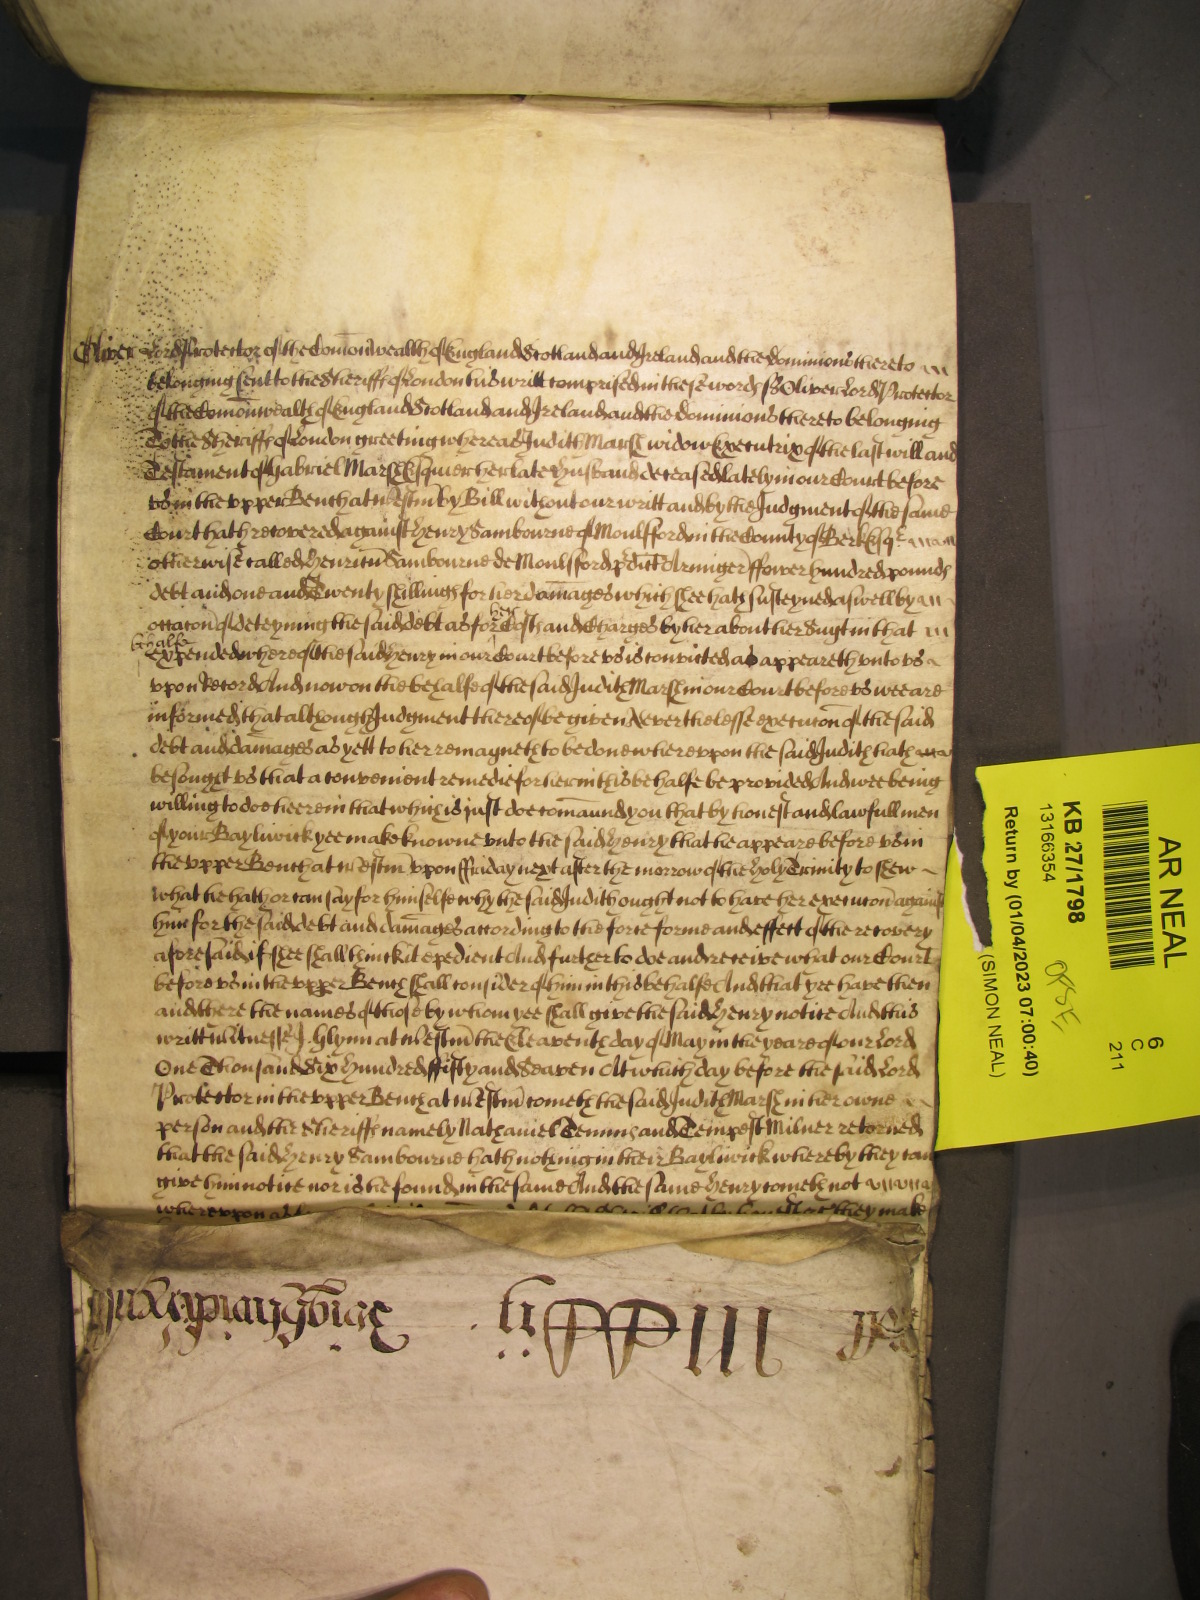 Oliver Lord Protector of the Com̄onwealth of England Scotland and Ireland and the dominions thereto
belonging sent to the Sheriff of London his writt comprised in these words ss Oliver Lord Protector
of the Com̄onwealth of England Scotland and Ireland and the dominions thereto belonging
To the Sheriffs of London greeting whereas Judith Marsh widow Executrix of the last will and
Testament of Gabriel Marsh Esquier her late Husband deceased lately in our Court before
vs in the vpper Bench at Westm̄ by Bill without our writt and by the Judgment of the same
Court hath recovered against Henry Sambourne of Moulsford in the County of Berk Esqr
otherwise called Henricū Sambourne de Moulsford p̄dict Armiger ffower hundred pounds
debt and one and Twenty shillings for her dam̄ages which shee hath susteyned aswell by
occac̄on of deteyning the said debt as for her Costs and Charges by her about her Suyt in that
behalfe
expended whereof the said Henry in our Court before vs is convicted as appeareth vnto vs
vpon Record And now on the behalfe of the said Judith Marsh in our Court before vs wee are
informed that although Judgment thereof be given Neverthelesse execuc̄on of the said
debt and damages as yett to her remayneth to be done wherevpon the said Judith hath
besought vs that a convenient remedie for her in this behalfe be provided And wee being
willing to doe heerein that which is just doe com̄aund you that by honest and lawfull men
of your Bayliwick yee make knowne vnto the said Henry that he appeare before vs in
the vpper Bench at Westm̄ vpon ffriday next after the morrow of the Holy Trinity to shew
what he hath or can say for himselfe why the said Judith ought not to have her execuc̄on against
him for the said debt and dam̄ages according to the force forme and effect of the recovery
aforesaid if shee shall thinck it expedient And further to doe and receive what our Court
before vs in the vpper Bench shall consider of him in this behalfe And that yee have then
and there the names of those by whom yee shall give the said Henry notice And this
writt Witnesse J. Glynn at Westm̄ the Eleaventh day of May in the yeare of our Lord
One Thousand Six Hundred ffifty and Seaven At which day before the said Lord
Protector in the vpper Bench at Westm̄ cometh the said Judith Marsh in her owne
person and the Sheriffs namely Nathaniel Temms and Tempest Milner retorned
that the said Henry Sambourne hath nothing in their Bayliwick whereby they can
give him notice nor is he found in the same And the same Henry cometh not
wherevpon as
they make
AR NEAL
KB 27/1798
13166354
Return by (01/04/2023 07:00:40)
(SIMON NEAL)
6
C
211